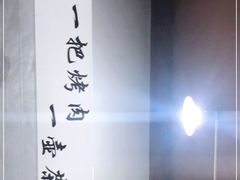 一把烤肉
一壶茶